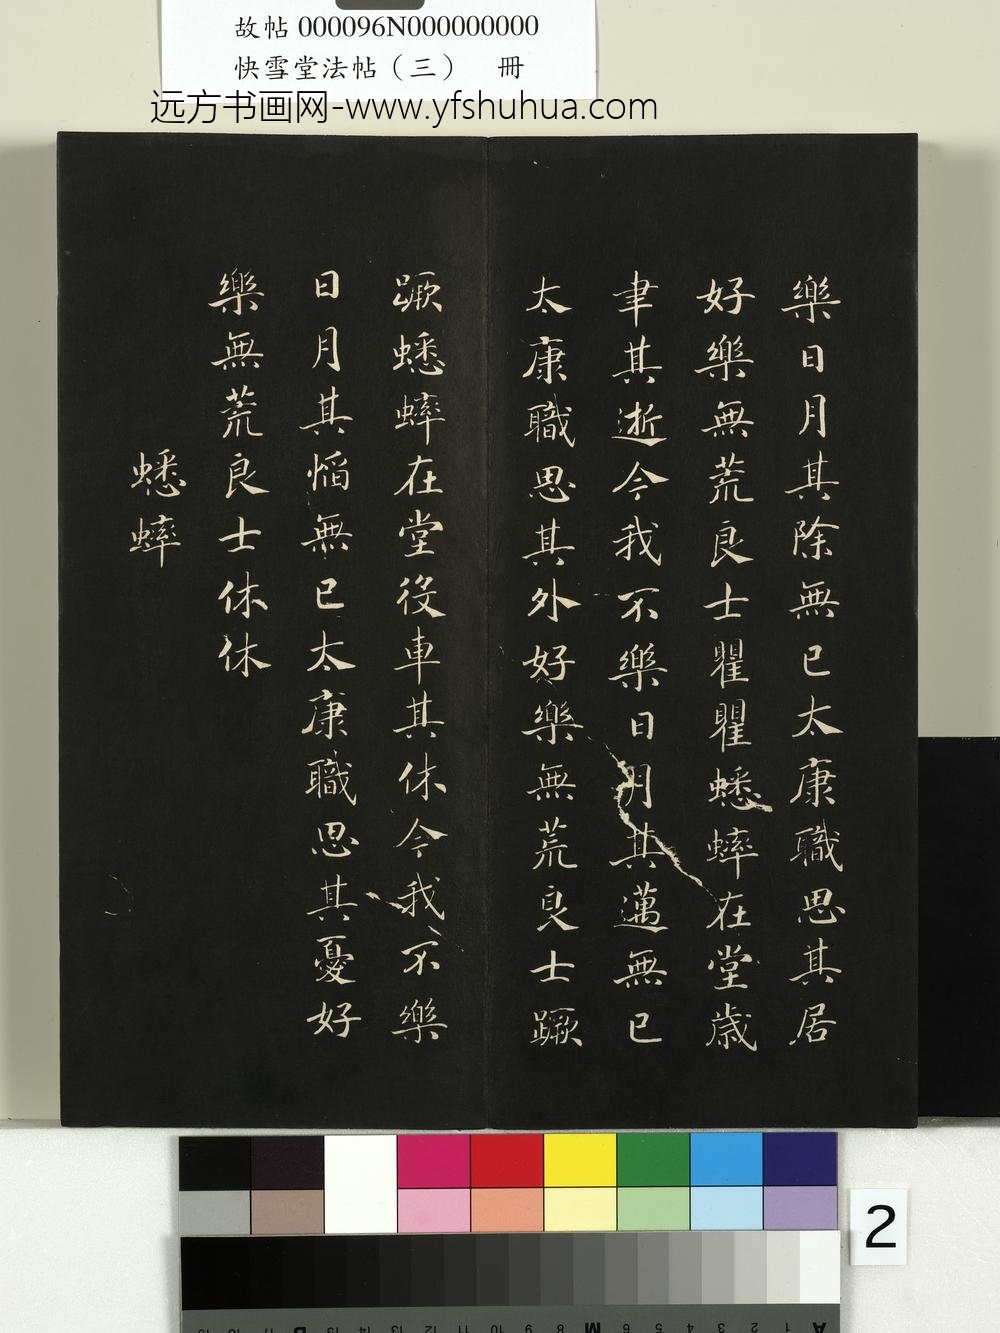 故帖 000096N000000000
快雪堂法帖（三） 冊
远方书画网-www.yfshuhua.com
樂日月其除無已太康職思其居
好樂無荒良士瞿瞿蟋蟀在堂歲
聿其逝今我不樂日月其邁無已
太康職思其外好樂無荒良士蹶
蹶蟋蟀在堂役車其休今我不樂
日月其慆無已太康職思其憂好
樂無荒良士休休
蟋蟀
2
A 1 2 3 4 5 6 M 8 9 10 11 12 13 14 15 B 17 18 19